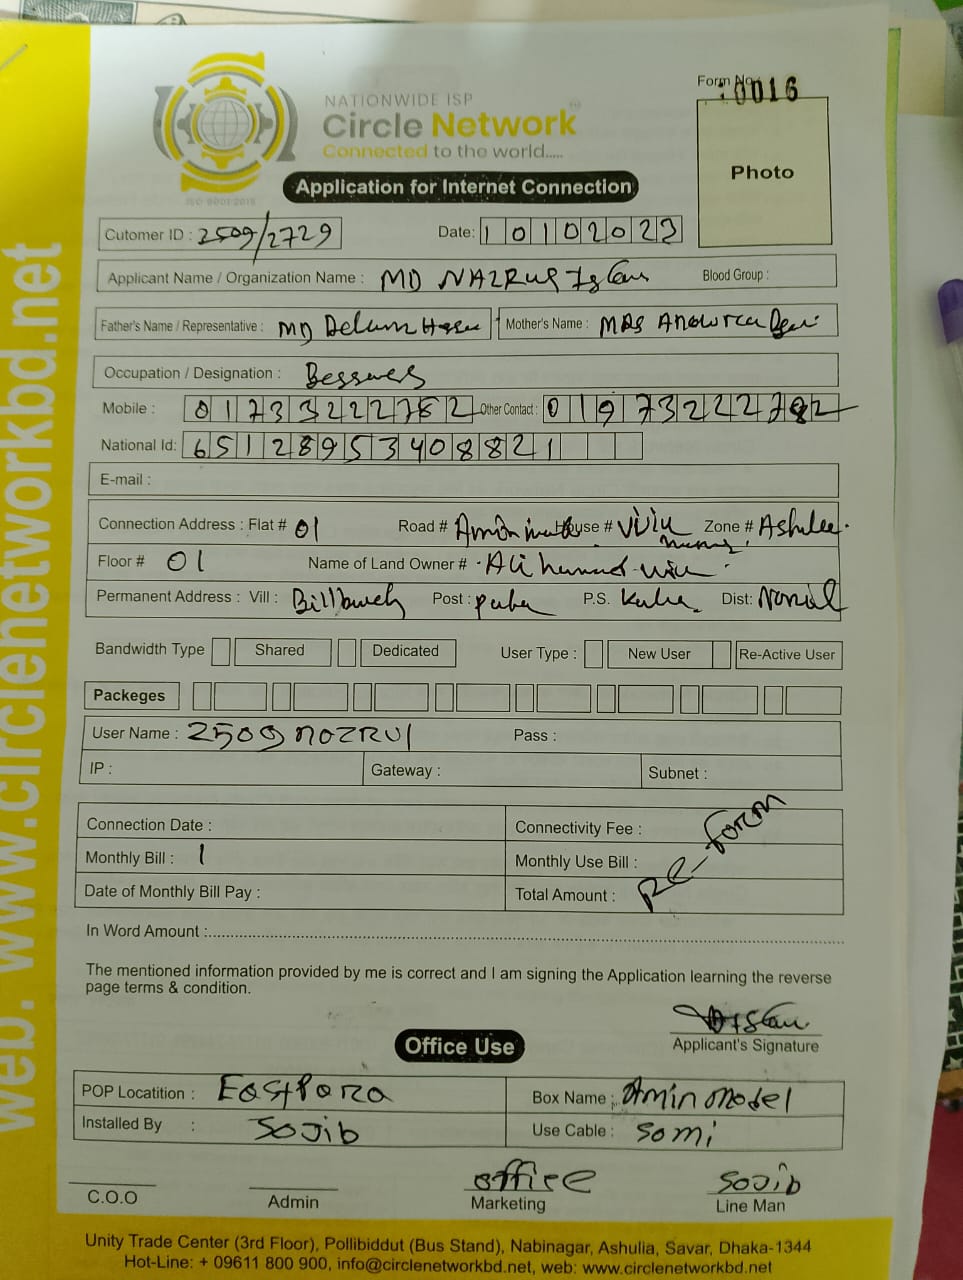 Form No. 10016
NATIONWIDE ISP
Circle Network
Connected to the world.....
ISO 9001:2015
Photo
Application for Internet Connection
Cutomer ID : 2509/2729 Date: 10102023
Applicant Name / Organization Name : MD NAZRUL Islam Blood Group :
Father's Name / Representative : MD Mother's Name : MRS
Occupation / Designation :
Mobile : 01733222782 Other Contact : 01973222782
National Id: 6512895340882 1
E-mail :
Connection Address : Flat # 01 Road # House # Zone # Ashulia
Floor # 01 Name of Land Owner #
Permanent Address : Vill : Post : P.S. Dist:
Bandwidth Type Shared Dedicated User Type : New User Re-Active User
Packeges
User Name : 2509 nozrul Pass :
IP : Gateway : Subnet :
Connection Date : Connectivity Fee :
Monthly Bill : 1 Monthly Use Bill :
Date of Monthly Bill Pay : Total Amount :
Re-Form
In Word Amount :
The mentioned information provided by me is correct and I am signing the Application learning the reverse
page terms & condition.
Applicant's Signature
Office Use
POP Locatition : EastPara Box Name : Amin model
Installed By : Sojib Use Cable : Somi
office Sojib
C.O.O Admin Marketing Line Man
Unity Trade Center (3rd Floor), Pollibiddut (Bus Stand), Nabinagar, Ashulia, Savar, Dhaka-1344
Hot-Line: + 09611 800 900, info@circlenetworkbd.net, web: www.circlenetworkbd.net
web. www.circlenetworkbd.net